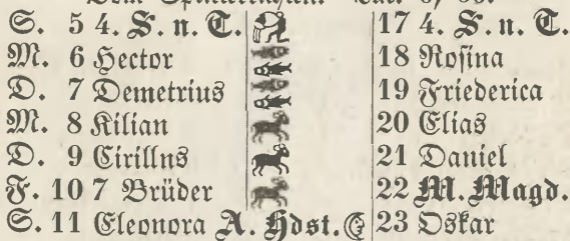 S. 5 4. S. n. T. 17 4. S. n. T.
M. 6 Hector 18 Rosina
D. 7 Demetrius 19 Friederica
M. 8 Kilian 20 Elias
D. 9 Cirillns 21 Daniel
F. 10 7 Brüder 22 M. Magd.
S. 11 Eleonora A. Hdst. 23 Oskar